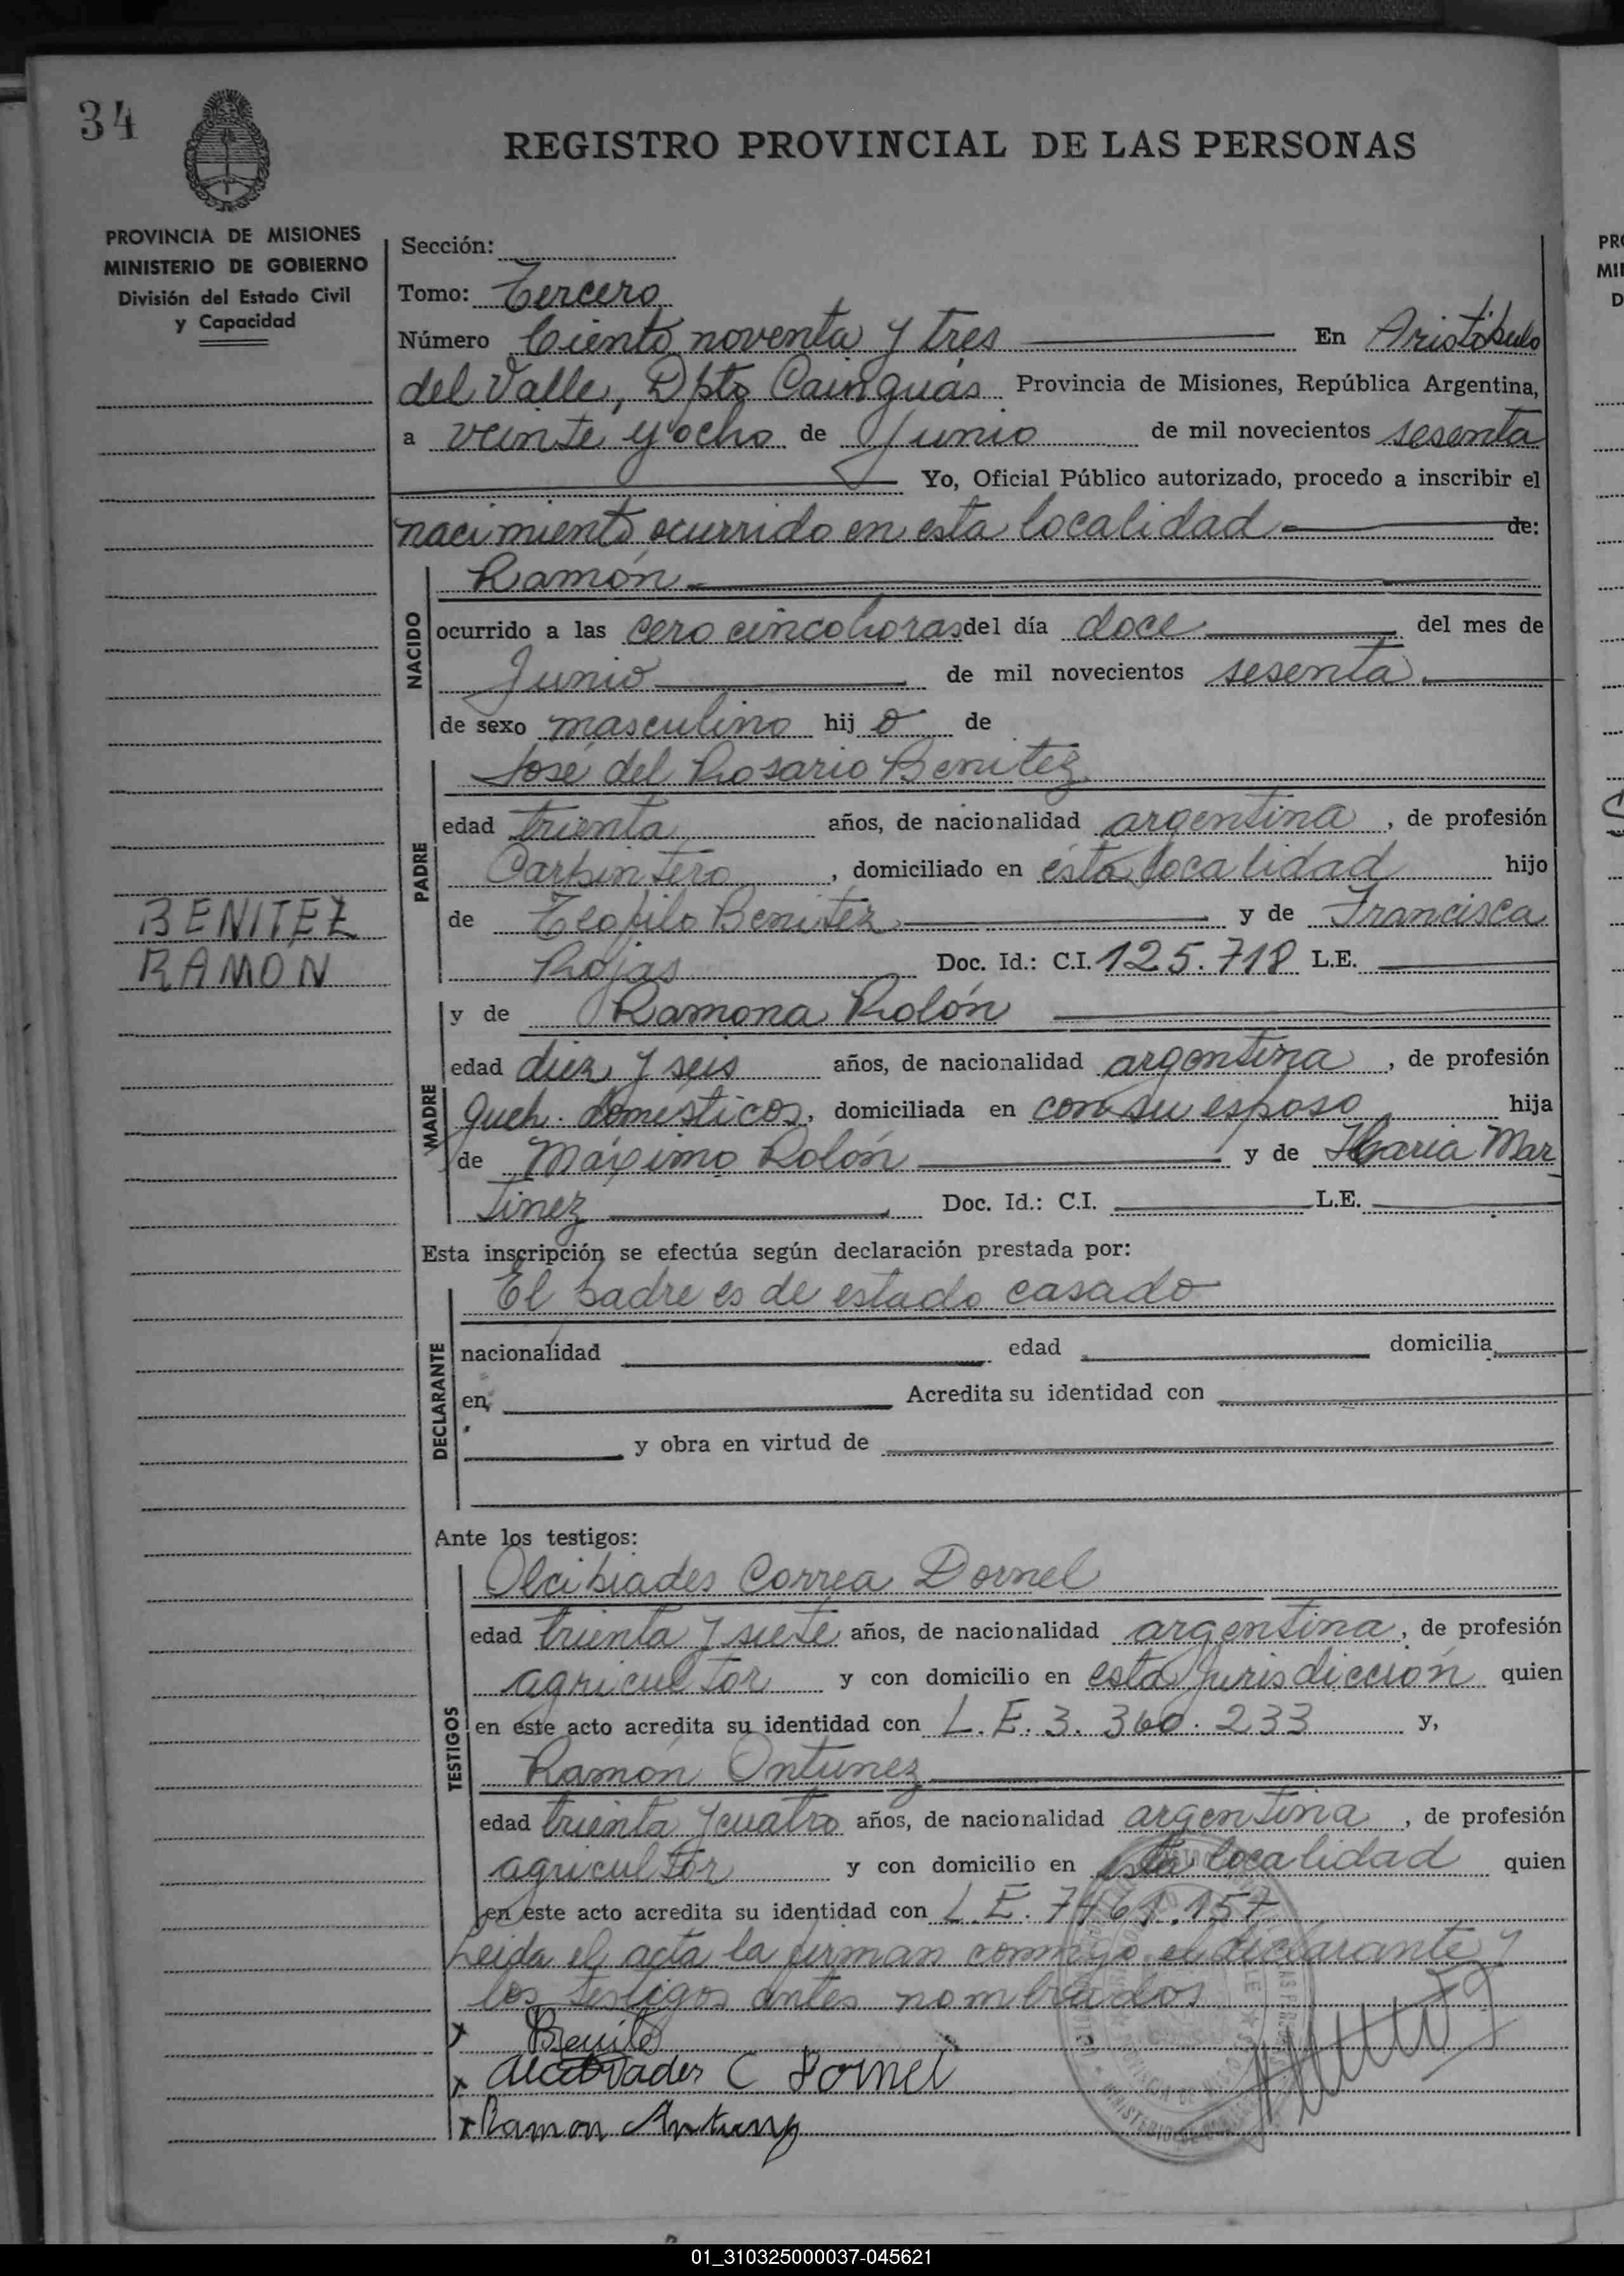 34
REGISTRO PROVINCIAL DE LAS PERSONAS
PROVINCIA DE MISIONES
MINISTERIO DE GOBIERNO
División del Estado Civil
y Capacidad
Sección:
Tomo: Tercero
Número Ciento noventa y tres En Aristóbulo
del Valle, Dpto Cainguás Provincia de Misiones, República Argentina,
a veinte y ocho de Junio de mil novecientos sesenta
Yo, Oficial Público autorizado, procedo a inscribir el
nacimiento ocurrido en esta localidad de:
NACIDO
Ramón
ocurrido a las cero cinco horas del día doce del mes de
Junio de mil novecientos sesenta
de sexo masculino hij o de
PADRE
José del Rosario Benitez
edad trienta años, de nacionalidad argentina, de profesión
Carpintero, domiciliado en esta localidad hijo
de Teofilo Benitez y de Francisca
Rojas Doc. Id.: C.I. 125.718 L.E.
BENITEZ
RAMON
MADRE
y de Ramona Rolón
edad diez y seis años, de nacionalidad argentina, de profesión
queh. domésticos, domiciliada en con su esposo hija
de Máximo Rolón y de Maria Mar
tinez Doc. Id.: C.I. L.E.
Esta inscripción se efectúa según declaración prestada por:
DECLARANTE
El padre es de estado casado
nacionalidad edad domicilia
en Acredita su identidad con
y obra en virtud de
Ante los testigos:
TESTIGOS
Alcibiades Correa Dornel
edad trienta y siete años, de nacionalidad argentina, de profesión
agricultor y con domicilio en esta Jurisdicción quien
en este acto acredita su identidad con L.E. 3.360.233 y,
Ramón Antunez
edad trienta y cuatro años, de nacionalidad argentina, de profesión
agricultor y con domicilio en esta localidad quien
en este acto acredita su identidad con L.E. 7461.157
Leida el acta la firman conmigo el declarante y
los testigos antes nombrados
x Benite
x Alcibiades C Dornel
x Ramon Antunez
01_310325000037-045621